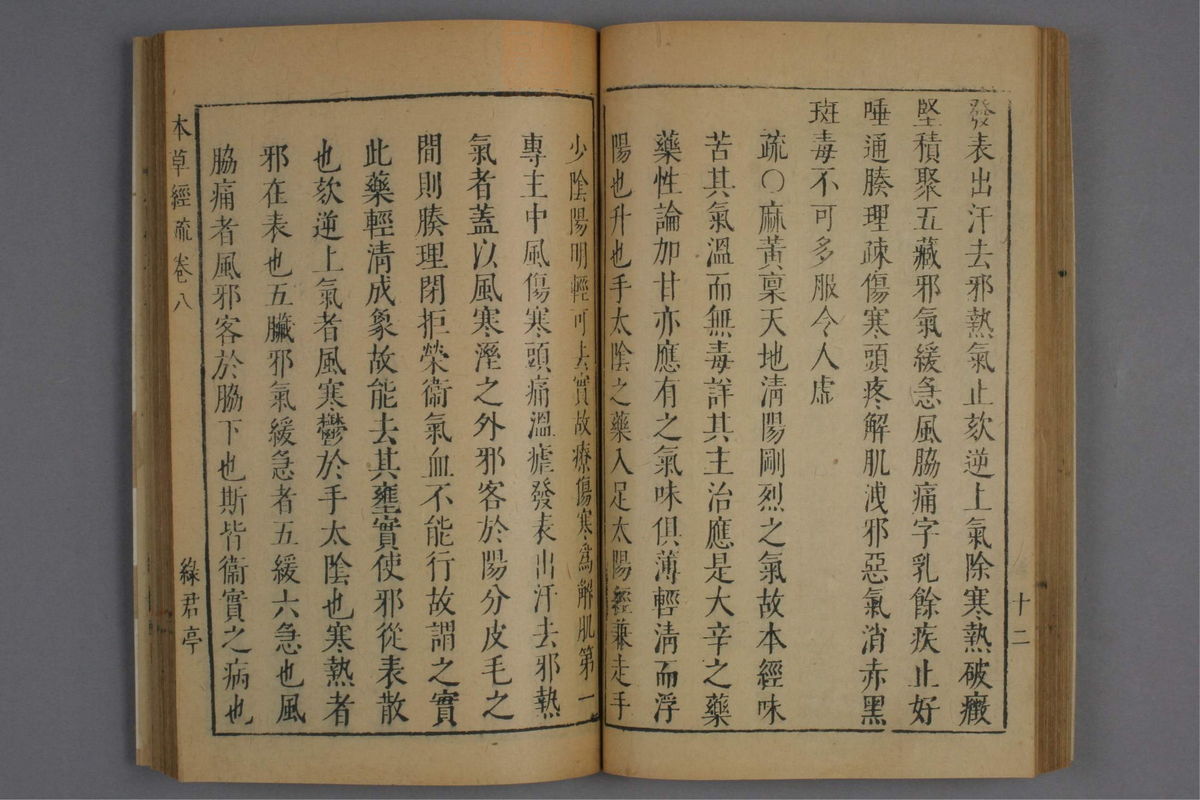 發表出汗去邪熱氣止欬逆上氣除寒熱破癥
堅積聚五藏邪氣緩急風脇痛字乳餘疾止好
唾通腠理疎傷寒頭疼解肌洩邪惡氣消赤黑
斑毒不可多服令人虛
疏○麻黃稟天地淸陽剛烈之氣故本經味
苦其氣溫而無毒詳其主治應是大辛之藥
藥性論加甘亦應有之氣味俱薄輕淸而浮
陽也升也手太陰之藥入足太陽經兼走手
十二
少陰陽明輕可去實故療傷寒爲解肌第一
專主中風傷寒頭痛溫瘧發表出汗去邪熱
氣者蓋以風寒溼之外邪客於陽分皮毛之
間則腠理閉拒榮衞氣血不能行故謂之實
此藥輕淸成象故能去其壅實使邪從表散
也欬逆上氣者風寒鬱於手太陰也寒熱者
邪在表也五臟邪氣緩急者五緩六急也風
脇痛者風邪客於脇下也斯皆衞實之病也
本草經疏卷八
綠君亭